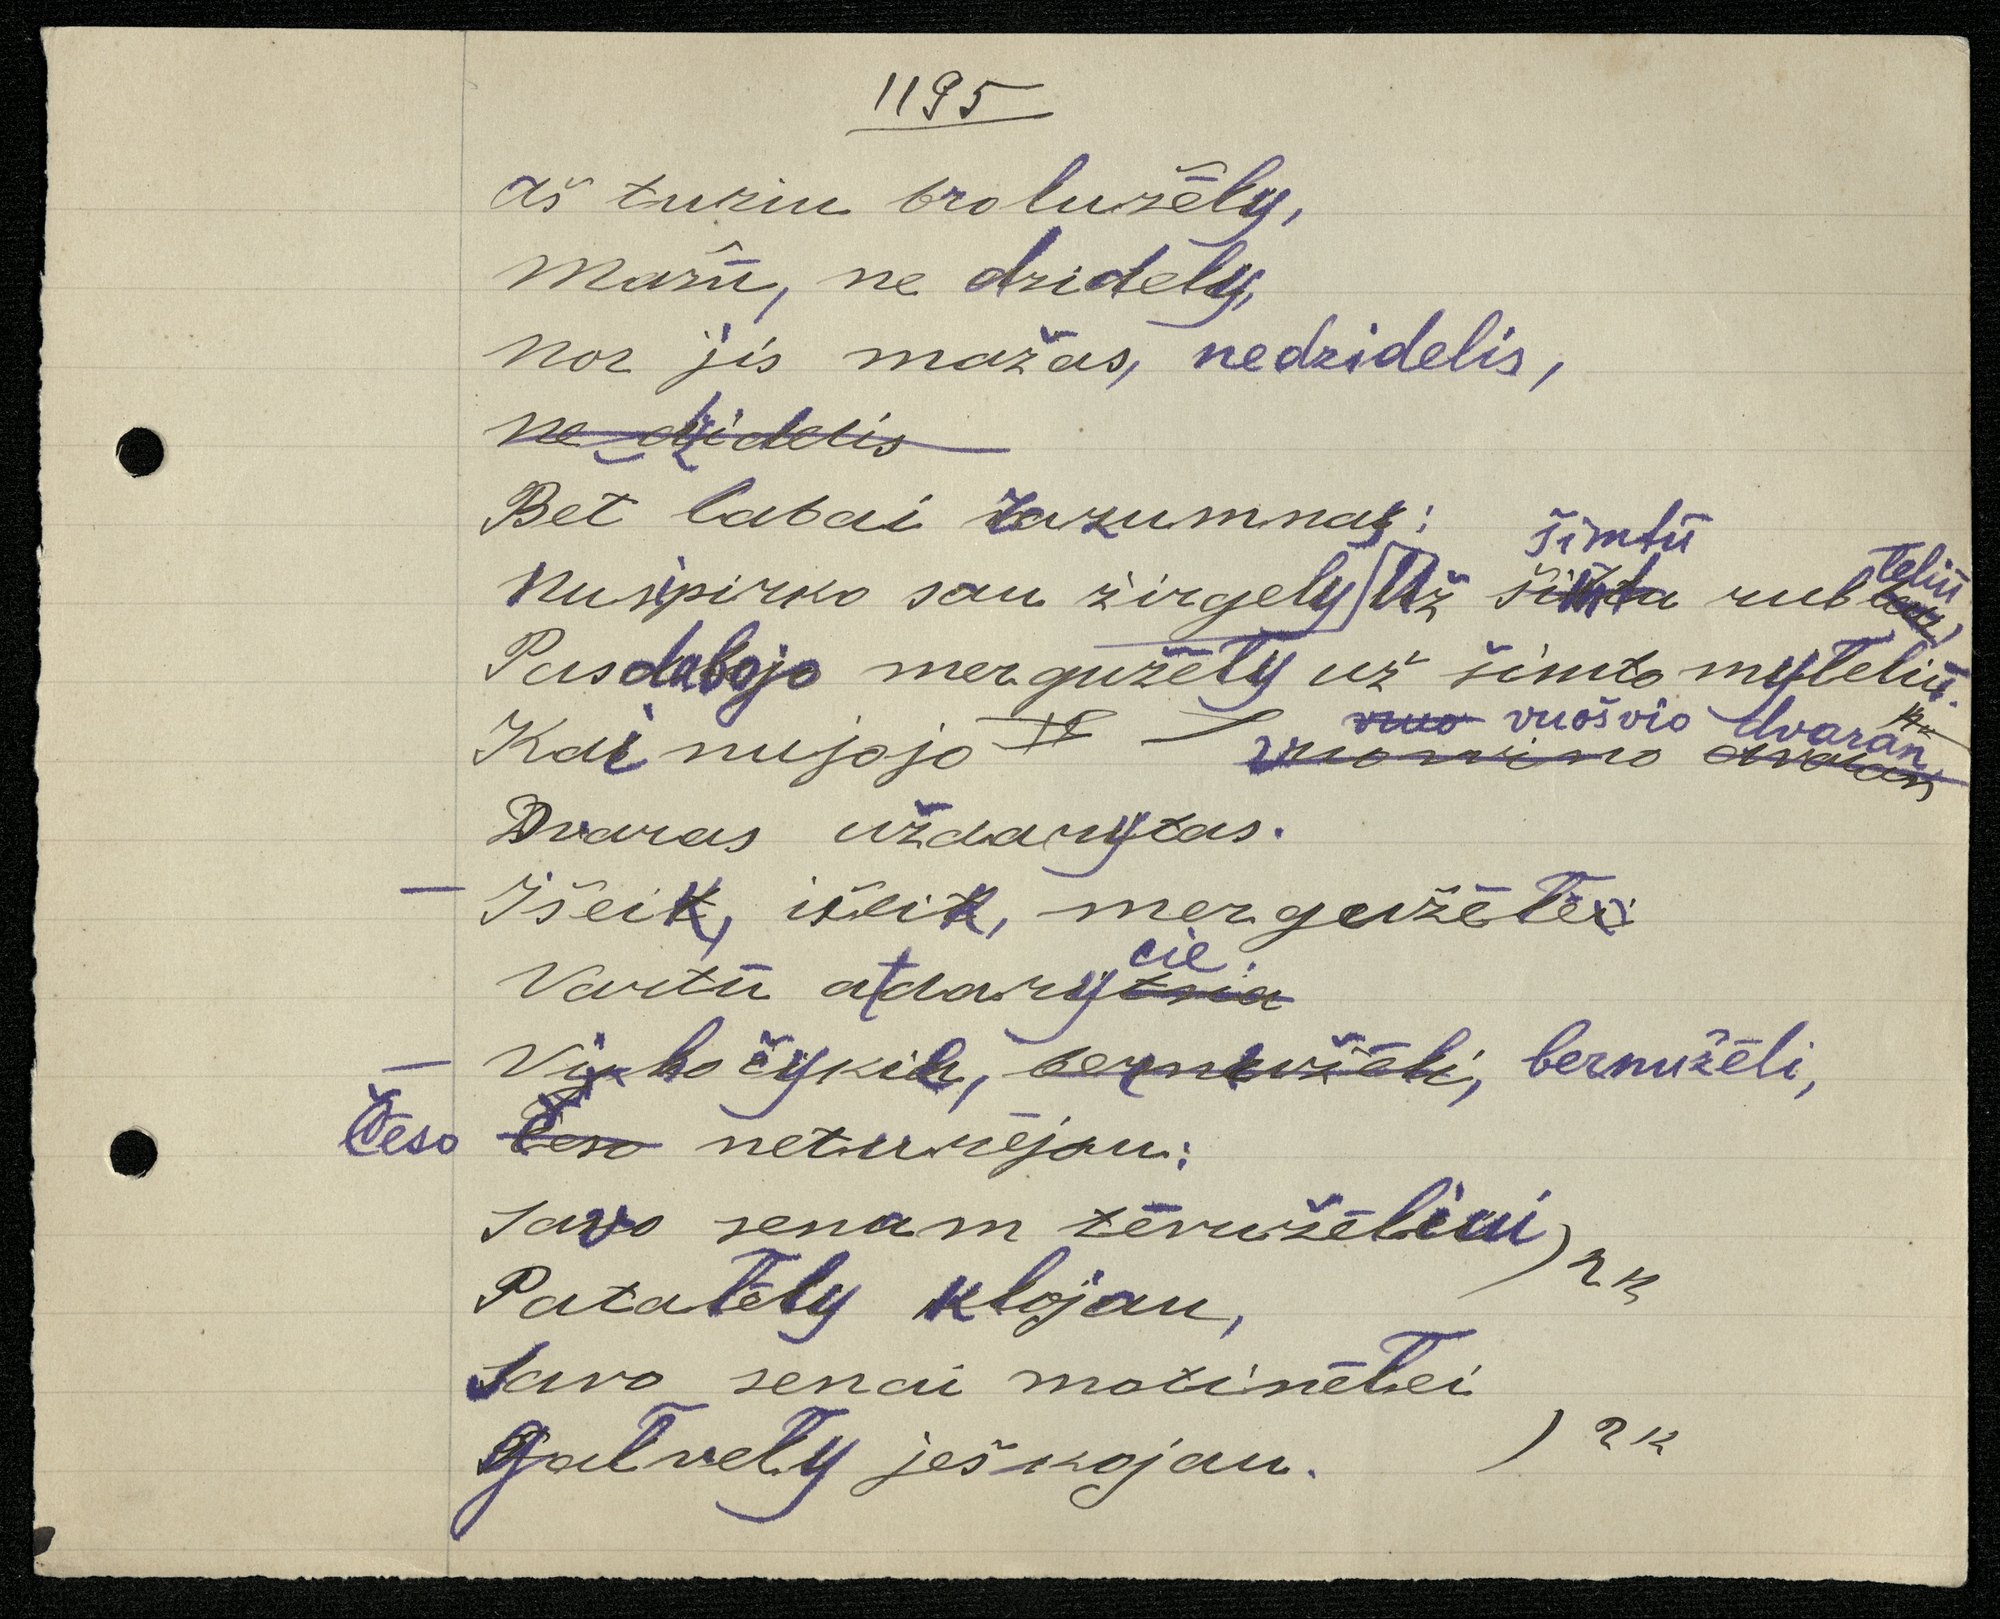 1195
Aš turiu brolužėlų,
Mažū, ne dzidelų,
Nor jis mažas, nedzidelis,
ne dzidelis
Bet labai razumnas:
šimtū
Nusipirko sau žirgelų Už šimta rublelių,
Pasdabojo mergužėłų už šimto mylelių.
vuo vuošvio dvaran
Kai nujojo
Dvaras uždarytas.
– Išeik, išeik, mergužėłei
cie.
Vartū atdarytsia
– Vybočykit, bernužėli, bernužėli,
Česo Česo neturėjau:
Savo senam tėvužėliui
2 k
Patałėlų klojau,
Savo senai motinėłei
Gałvełų ješkojau. 2 k